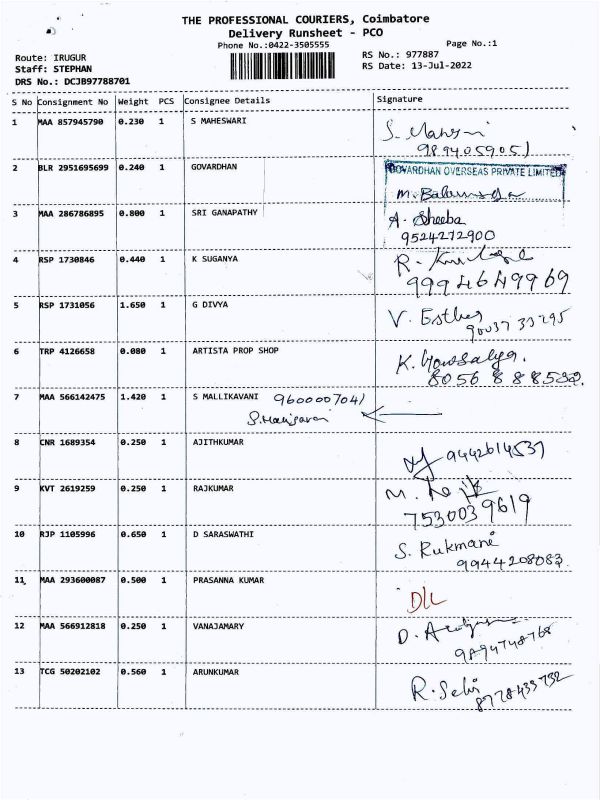 THE PROFESSIONAL COURIERS, Coimbatore
Delivery Runsheet - PCO
Phone No.:0422-3505555
Page No.:1
Route: IRUGUR
Staff: STEPHAN
DRS No.: DCJB97788701
RS No.: 977887
RS Date: 13-Jul-2022
S No Consignment No Weight PCS Consignee Details Signature
1 MAA 857945790 0.230 1 S MAHESWARI
9894059051
2 BLR 2951695699 0.240 1 GOVARDHAN GOVARDHAN OVERSEAS PRIVATE LIMITED
3 MAA 286786895 0.800 1 SRI GANAPATHY A. Sheeba
9524272900
4 RSP 1730846 0.440 1 K SUGANYA R.
9994649969
5 RSP 1731056 1.650 1 G DIVYA V. Esther
6 TRP 4126658 0.080 1 ARTISTA PROP SHOP K. Gowsalya.
8056 888532.
7 MAA 566142475 1.420 1 S MALLIKAVANI 9600007041
8 CNR 1689354 0.250 1 AJITHKUMAR 9442614537
9 KVT 2619259 0.250 1 RAJKUMAR M.
7530039619
10 RJP 1105996 0.650 1 D SARASWATHI S. Rukmani
9944208083.
11 MAA 293600087 0.500 1 PRASANNA KUMAR D/L
12 MAA 566912818 0.250 1 VANAJAMARY D.
9894748768
13 TCG 50202102 0.560 1 ARUNKUMAR R. Selvi
8778433732